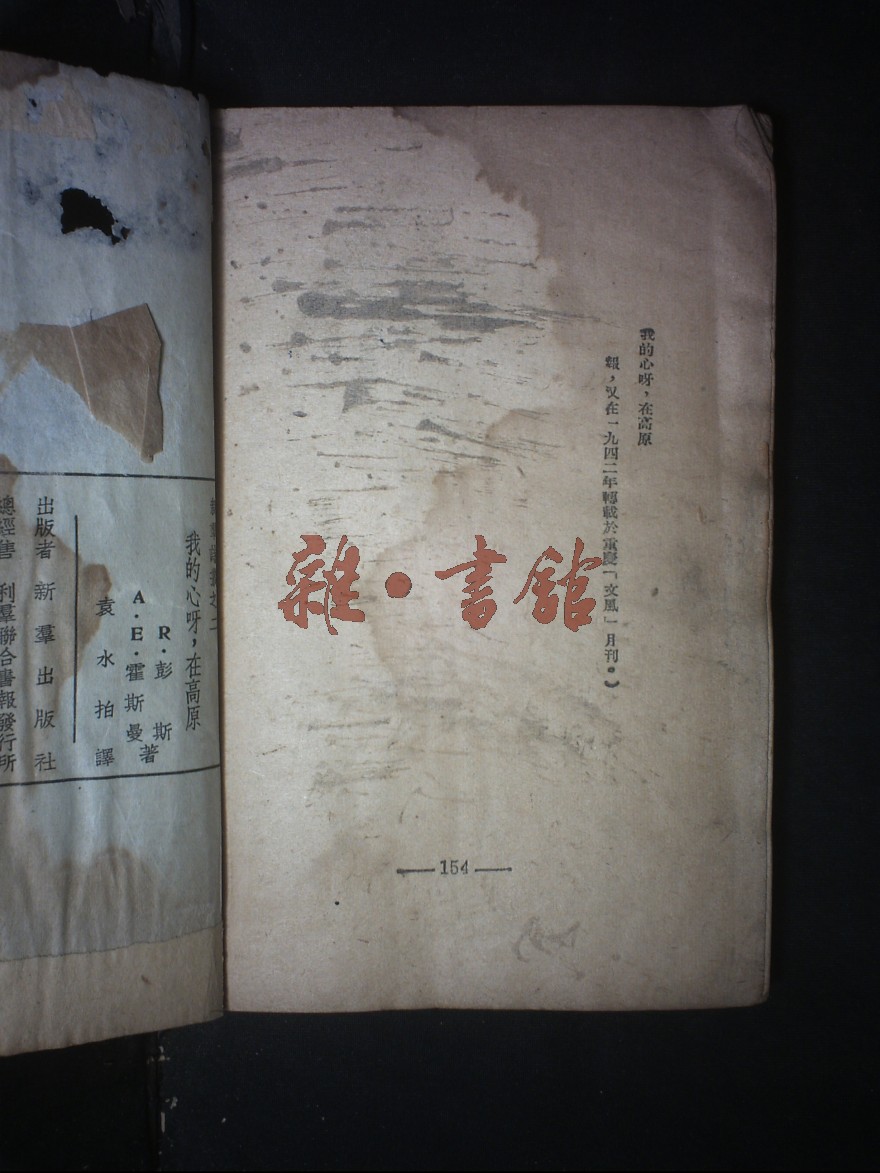 我的心呀，在高原
報，又在一九四二年轉載於重慶「文風」月刊。）
—154—
之二
我的心呀，在高原
R·彭斯
A·E·霍斯曼著
袁水拍譯
出版者 新羣出版社
總經售 利羣聯合書報發行所
雜·書館